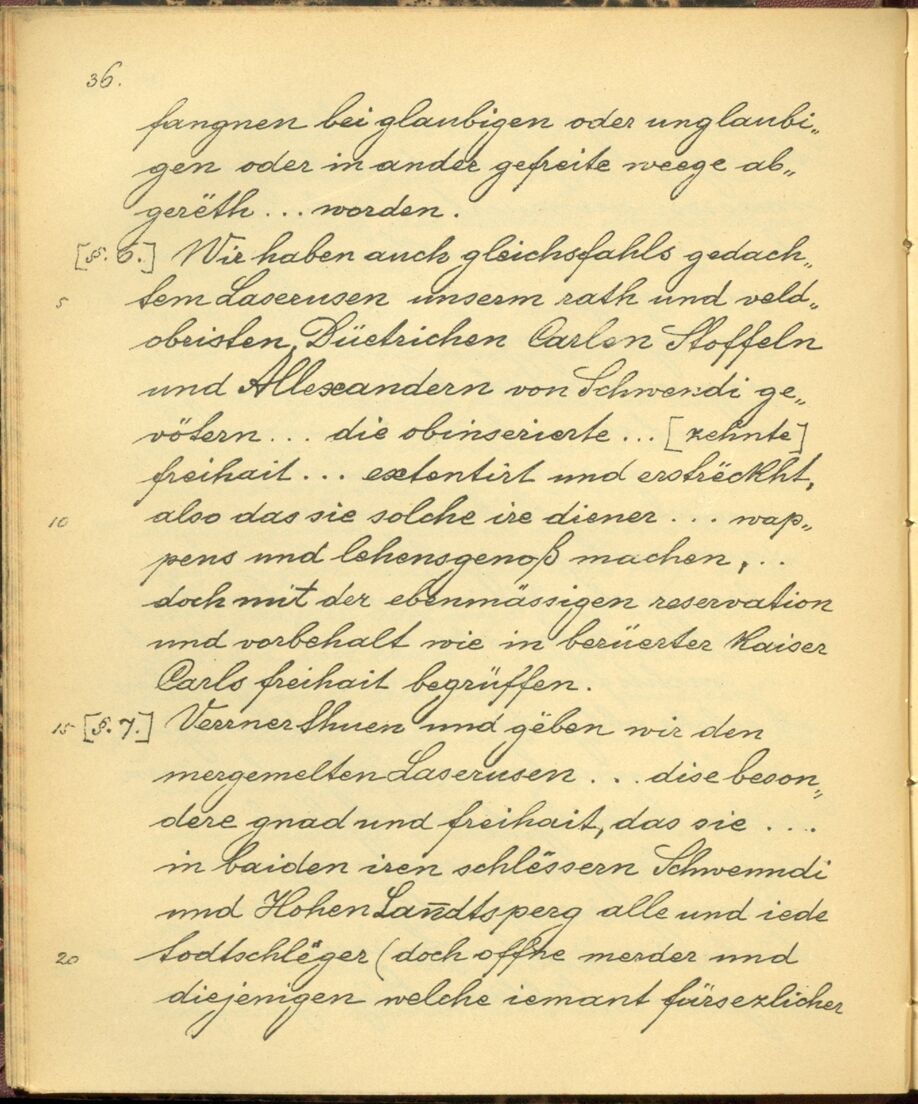 36.
fangnen bei glaubigen oder unglaubi„
gen oder in ander gefreite weege ab„
gerëth ... worden.
[§. 6.] Wir haben auch gleichsfahls gedach„
5 tem Laserusen unserm rath und veld„
obristen, Düetrichen Carlen Stoffeln
und Allexandern von Schwendi ge„
vötern ... die obinserierte ... [zehnte]
freihait ... extentirt und erströckht,
10 also das sie solche ire diener ... wap„
pens und lehensgenoß machen, ..
doch mit der ebenmässigen reservation
und vorbehalt wie in berüerter Kaiser
Carls freihait begrüffen.
15 [§. 7.] Verrner thuen und gëben wir den
mergemelten Laserusen ... dise beson„
dere gnad und freihait, das sie ...
in baiden iren schlössern Schwenndi
und Hohen Lan̄dtsperg alle und iede
20 todtschlëger (doch offne merder und
diejenigen welche iemant fürsezlicher